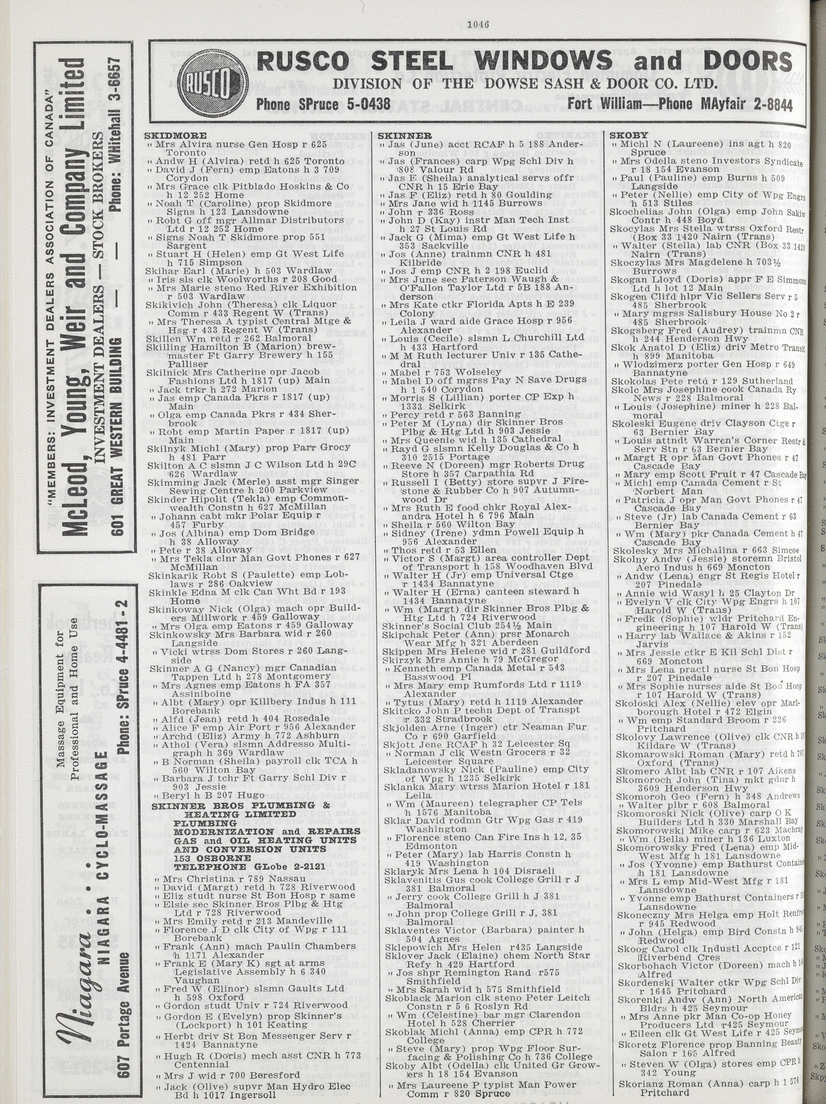 1046
RUSCO
RUSCO STEEL WINDOWS and DOORS
DIVISION OF THE DOWSE SASH & DOOR CO. LTD.
Phone SPruce 5-0438 Fort William—Phone MAyfair 2-8844
"MEMBERS: INVESTMENT DEALERS ASSOCIATION OF CANADA"
McLeod, Young, Weir and Company Limited
INVESTMENT DEALERS — STOCK BROKERS
601 GREAT WESTERN BUILDING — — Phone: WHitehall 3-6657
Massage Equipment for
Professional and Home Use
Niagara
NIAGARA CYCLO-MASSAGE
607 Portage Avenue Phone: SPruce 4-4481 - 2
SKIDMORE
" Mrs Alvira nurse Gen Hosp r 625
Toronto
" Andw H (Alvira) retd h 625 Toronto
" David J (Fern) emp Eatons h 3 709
Corydon
" Mrs Grace clk Pitblado Hoskins & Co
h 12 252 Home
" Noah T (Caroline) prop Skidmore
Signs h 123 Lansdowne
" Robt G off mgr Allmar Distributors
Ltd r 12 252 Home
" Signs Noah T Skidmore prop 551
Sargent
" Stuart H (Helen) emp Gt West Life
h 715 Simpson
Skihar Earl (Marie) h 503 Wardlaw
" Iris sls clk Woolworths r 208 Good
" Mrs Marie steno Red River Exhibition
r 503 Wardlaw
Skikivich John (Theresa) clk Liquor
Comm r 433 Regent W (Trans)
" Mrs Theresa A typist Central Mtge &
Hsg r 433 Regent W (Trans)
Skillen Wm retd r 262 Balmoral
Skilling Hamilton B (Marion) brew-
master Ft Garry Brewery h 155
Palliser
Skilnick Mrs Catherine opr Jacob
Fashions Ltd h 1817 (up) Main
" Jack trkr h 272 Marion
" Jas emp Canada Pkrs r 1817 (up)
Main
" Olga emp Canada Pkrs r 434 Sher-
brook
" Robt emp Martin Paper r 1817 (up)
Main
Skilnyk Michl (Mary) prop Parr Grocy
h 481 Parr
Skilton A C slsmn J C Wilson Ltd h 29C
626 Wardlaw
Skimming Jack (Merle) asst mgr Singer
Sewing Centre h 200 Parkview
Skinder Hipolit (Tekla) emp Common-
wealth Constn h 627 McMillan
" Johann cabt mkr Polar Equip r
457 Furby
" Jos (Albina) emp Dom Bridge
h 38 Alloway
" Pete r 38 Alloway
" Mrs Tekla clnr Man Govt Phones r 627
McMillan
Skinkarik Robt S (Paulette) emp Lob-
laws r 286 Oakview
Skinkle Edna M clk Can Wht Bd r 193
Home
Skinkoway Nick (Olga) mach opr Build-
ers Millwork r 459 Galloway
" Mrs Olga emp Eatons r 459 Galloway
Skinkowsky Mrs Barbara wid r 260
Langside
" Vicki wtrss Dom Stores r 260 Lang-
side
Skinner A G (Nancy) mgr Canadian
Tappen Ltd h 278 Montgomery
" Mrs Agnes emp Eatons h FA 357
Assiniboine
" Albt (Mary) opr Killbery Indus h 111
Borebank
" Alfd (Jean) retd h 404 Rosedale
" Alice F emp Air Port r 956 Alexander
" Archd (Ella) Army h 772 Ashburn
" Athol (Vera) slsmn Addresso Multi-
graph h 369 Wardlaw
" B Norman (Sheila) payroll clk TCA h
560 Wilton Bay
" Barbara J tchr Ft Garry Schl Div r
903 Jessie
" Beryl h B 207 Hugo
SKINNER BROS PLUMBING &
HEATING LIMITED
PLUMBING
MODERNIZATION and REPAIRS
GAS and OIL HEATING UNITS
AND CONVERSION UNITS
153 OSBORNE
TELEPHONE GLobe 2-2121
" Mrs Christina r 789 Nassau
" David (Margt) retd h 728 Riverwood
" Eliz studt nurse St Bon Hosp r same
" Elsie sec Skinner Bros Plbg & Htg
Ltd r 728 Riverwood
" Mrs Emily retd r 213 Mandeville
" Florence J D clk City of Wpg r 111
Borebank
" Frank (Ann) mach Paulin Chambers
h 1171 Alexander
" Frank E (Mary K) sgt at arms
Legislative Assembly h 6 340
Vaughan
" Fred W (Elinor) slsmn Gaults Ltd
h 598 Oxford
" Gordon studt Univ r 724 Riverwood
" Gordon E (Evelyn) prop Skinner's
(Lockport) h 101 Keating
" Herbt driv St Bon Messenger Serv r
1424 Bannatyne
" Hugh R (Doris) mech asst CNR h 773
Centennial
" Mrs J wid r 700 Beresford
" Jack (Olive) supvr Man Hydro Elec
Bd h 1017 Ingersoll
SKINNER
" Jas (June) acct RCAF h 5 188 Ander-
son
" Jas (Frances) carp Wpg Schl Div h
808 Valour Rd
" Jas E (Sheila) analytical servs offr
CNR h 15 Erie Bay
" Jas F (Eliz) retd h 80 Goulding
" Mrs Jane wid h 1145 Burrows
" John r 336 Ross
" John D (Kay) instr Man Tech Inst
h 27 St Louis Rd
" Jack G (Mima) emp Gt West Life h
353 Sackville
" Jos (Anne) trainmn CNR h 481
Kilbride
" Jos J emp CNR h 2 198 Euclid
" Mrs June sec Paterson Waugh &
O'Fallon Taylor Ltd r 5B 188 An-
derson
" Mrs Kate ctkr Florida Apts h E 239
Colony
" Leila J ward aide Grace Hosp r 956
Alexander
" Louis (Cecile) slsmn L Churchill Ltd
h 433 Hartford
" M M Ruth lecturer Univ r 135 Cathe-
dral
" Mabel r 753 Wolseley
" Mabel D off mgrss Pay N Save Drugs
h 1 540 Corydon
" Morris S (Lillian) porter CP Exp h
1333 Selkirk
" Percy retd r 563 Banning
" Peter M (Lyna) dir Skinner Bros
Plbg & Htg Ltd h 903 Jessie
" Mrs Queenie wid h 135 Cathedral
" Rayd G slsmn Kelly Douglas & Co h
310 2515 Portage
" Reeve N (Doreen) mgr Roberts Drug
Store h 357 Carpathia Rd
" Russell I (Betty) store supvr J Fire-
stone & Rubber Co h 907 Autumn-
wood Dr
" Mrs Ruth E food chkr Royal Alex-
andra Hotel h 6 796 Main
" Sheila r 560 Wilton Bay
" Sidney (Irene) ydmn Powell Equip h
956 Alexander
" Thos retd r 53 Ellen
" Victor S (Margt) area controller Dept
of Transport h 158 Woodhaven Blvd
" Walter H (Jr) emp Universal Ctge
r 1434 Bannatyne
" Walter H (Erna) canteen steward h
1434 Bannatyne
" Wm (Margt) dir Skinner Bros Plbg &
Htg Ltd h 724 Riverwood
Skinner's Social Club 254½ Main
Skipchak Peter (Ann) prsr Monarch
Wear Mfg h 321 Aberdeen
Skippen Mrs Helene wid r 281 Guildford
Skirzyk Mrs Annie h 79 McGregor
" Kenneth emp Canada Metal r 543
Basswood Pl
" Mrs Mary emp Rumfords Ltd r 1119
Alexander
" Tytus (Mary) retd h 1119 Alexander
Skitcko John P techn Dept of Transpt
r 332 Stradbrook
Skjolden Arne (Inger) ctr Neaman Fur
Co r 690 Garfield
Skjott Jene RCAF h 32 Leicester Sq
" Norman J clk Westn Grocers r 32
Leicester Square
Skladanowsky Nick (Pauline) emp City
of Wpg h 1235 Selkirk
Sklanka Mary wtrss Marion Hotel r 181
Leila
" Wm (Maureen) telegrapher CP Tels
h 1576 Manitoba
Sklar David rodmn Gtr Wpg Gas r 419
Washington
" Florence steno Can Fire Ins h 12, 35
Edmonton
" Peter (Mary) lab Harris Constn h
419 Washington
Sklaryk Mrs Lena h 104 Disraeli
Sklavenitis Gus cook College Grill r J
381 Balmoral
" Jerry cook College Grill h J 381
Balmoral
" John prop College Grill r J, 381
Balmoral
Sklaventes Victor (Barbara) painter h
504 Agnes
Sklepowich Mrs Helen r435 Langside
Sklover Jack (Elaine) chem North Star
Refy h 429 Hartford
" Jos shpr Remington Rand r575
Smithfield
" Mrs Sarah wid h 575 Smithfield
Skoblack Marion clk steno Peter Leitch
Constn r 5 6 Roslyn Rd
" Wm (Celestine) bar mgr Clarendon
Hotel h 528 Cherrier
Skoblak Michl (Anna) emp CPR h 772
College
" Steve (Mary) prop Wpg Floor Sur-
facing & Polishing Co h 736 College
Skoby Albt (Odella) clk United Gr Grow-
ers h 18 154 Evanson
" Mrs Laureene P typist Man Power
Comm r 820 Spruce
SKOBY
" Michl N (Laureene) ins agt h 820
Spruce
" Mrs Odella steno Investors Syndicate
r 18 154 Evanson
" Paul (Pauline) emp Burns h 509
Langside
" Peter (Nellie) emp City of Wpg Engrs
h 513 Stiles
Skochelias John (Olga) emp John Sakiw
Contr h 448 Boyd
Skocylas Mrs Stella wtrss Oxford Restr
(Box 33 1420 Nairn (Trans)
" Walter (Stella) lab CNR (Box 33 1420
Nairn (Trans)
Skoczylas Mrs Magdelene h 703½
Burrows
Skogan Lloyd (Doris) appr F E Simmons
Ltd h lot 12 Main
Skogen Clifd hlpr Vic Sellers Serv r 5
485 Sherbrook
" Mary mgrss Salisbury House No 2 r
485 Sherbrook
Skogsberg Fred (Audrey) trainmn CNR
h 244 Henderson Hwy
Skok Anatol D (Eliz) driv Metro Transit
h 899 Manitoba
" Wlodzimerz porter Gen Hosp r 649
Bannatyne
Skokolas Pete retd r 129 Sutherland
Skole Mrs Josephine cook Canada Ry
News r 228 Balmoral
" Louis (Josephine) miner h 228 Bal-
moral
Skoleski Eugene driv Clayson Ctge r
63 Bernier Bay
" Louis attndt Warren's Corner Restr &
Serv Stn r 63 Bernier Bay
" Margt R opr Man Govt Phones r 47
Cascade Bay
" Mary emp Scott Fruit r 47 Cascade Bay
" Michl emp Canada Cement r St
Norbert Man
" Patricia J opr Man Govt Phones r 47
Cascade Bay
" Steve (Jr) lab Canada Cement r 63
Bernier Bay
" Wm (Mary) pkr Canada Cement h 47
Cascade Bay
Skolesky Mrs Michalina r 663 Simcoe
Skolny Andw (Jessie) storemn Bristol
Aero Indus h 669 Moncton
" Andw (Lena) engr St Regis Hotel r
207 Pinedale
" Annie wid Wasyl h 25 Clayton Dr
" Evelyn V clk City Wpg Engrs h 107
Harold W (Trans)
" Fredk (Sophie) wldr Pritchard En-
gineering h 107 Harold W (Trans)
" Harry lab Wallace & Akins r 152
Jarvis
" Mrs Jessie ctkr E Kil Schl Dist r
669 Moncton
" Mrs Lena practl nurse St Bon Hosp
r 207 Pinedale
" Mrs Sophie nurses aide St Bon Hosp
r 107 Harold W (Trans)
Skoloski Alex (Nellie) elev opr Marl-
borough Hotel r 472 Elgin
" Wm emp Standard Broom r 226
Pritchard
Skolovy Lawrence (Olive) clk CNR h
Kildare W (Trans)
Skomarowski Roman (Mary) retd h
Oxford (Trans)
Skomero Albt lab CNR r 107 Aikens
Skomoroch John (Tina) mkt gdnr h
3609 Henderson Hwy
Skomoroh Geo (Fern) h 348 Andrews
" Walter plbr r 608 Balmoral
Skomoroski Nick (Olive) carp O K
Builders Ltd h 330 Marshall Bay
Skomorowski Mike carp r 623 Machray
" Wm (Bella) miner h 136 Luxton
Skomorowsky Fred (Lena) emp Mid-
West Mfg h 181 Lansdowne
" Jos (Yvonne) emp Bathurst Container
h 181 Lansdowne
" Mrs L emp Mid-West Mfg r 181
Lansdowne
" Yvonne emp Bathurst Containers r
Lansdowne
Skoneczny Mrs Helga emp Holt Renfrew
r 945 Redwood
" John (Helga) emp Bird Constn h 945
Redwood
Skoog Carol clk Industl Accptce r 121
Riverbend Cres
Skorbohach Victor (Doreen) mach h
Alfred
Skordenski Walter ctkr Wpg Schl Div
r 1645 Pritchard
Skorenki Andw (Ann) North American
Bldrs h 425 Seymour
" Mrs Anne pkr Man Co-op Honey
Producers Ltd r425 Seymour
" Eileen clk Gt West Life r 425 Seymour
Skoretz Florence prop Banning Beauty
Salon r 165 Alfred
" Steven W (Olga) stores emp CPR h
342 Young
Skorianz Roman (Anna) carp h 1 576
Pritchard